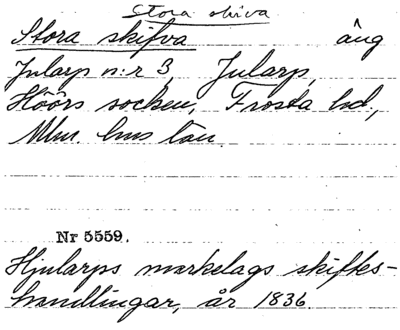 Stora skiva
Stora skifva äng
Jularp n:r 3, Jularp,
Höörs socken, Frosta hd.,
Mlm. hus län
Nr 5559.
Hjularps markelags skiftes-
handlingar, år 1836.